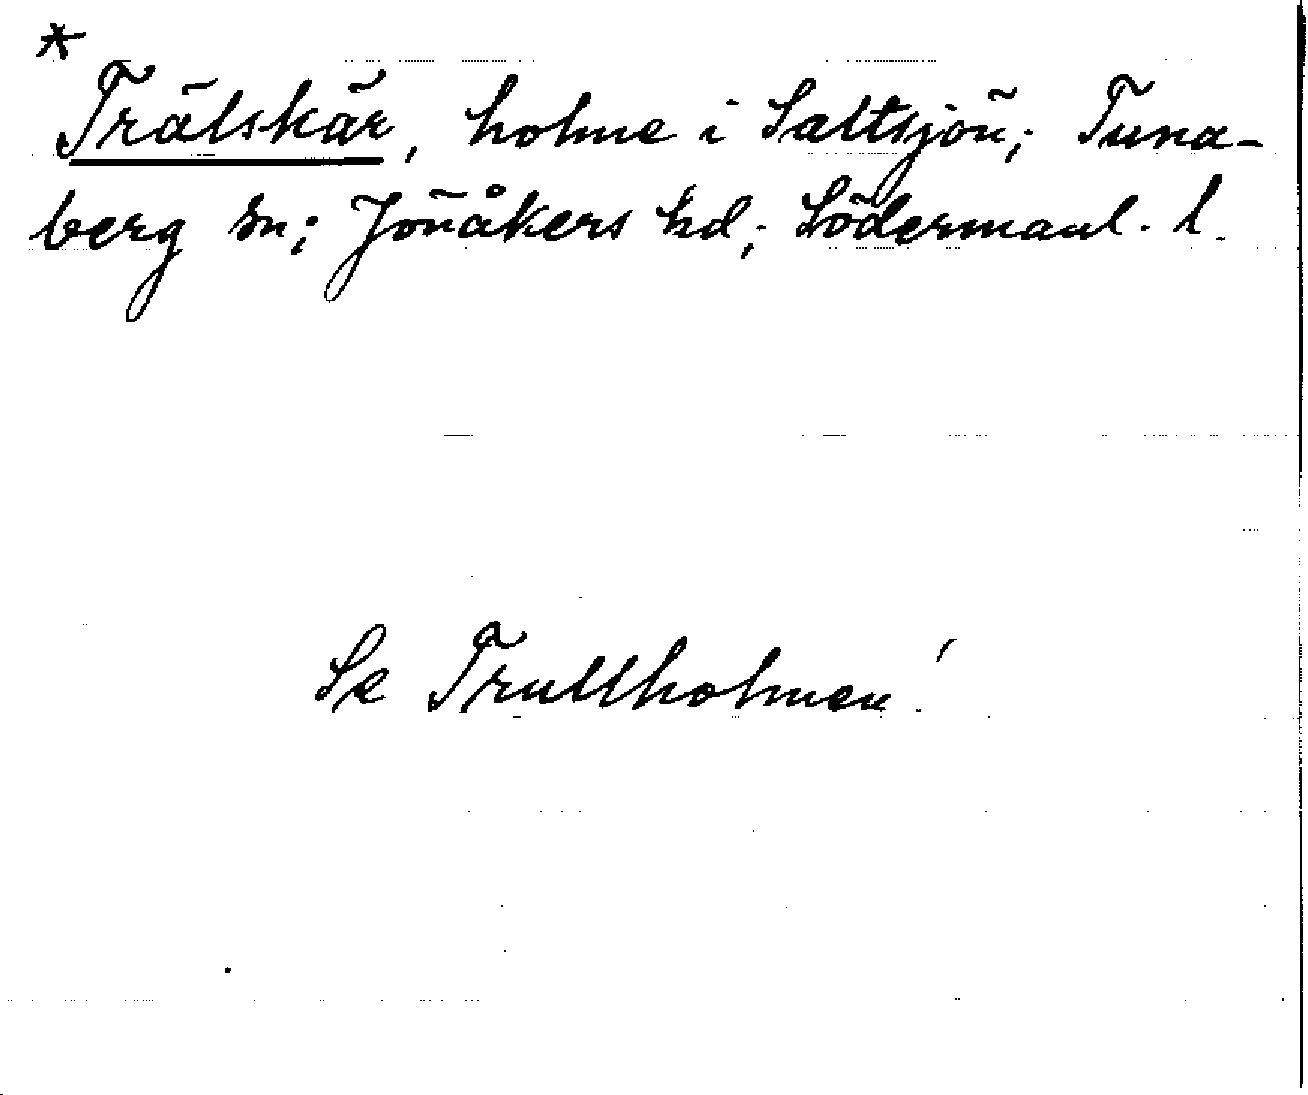 *
Trälskär, holme i Saltsjön; Tuna-
berg sn; Jönåkers hd; Södermanl. l.
Se Trullholmen!